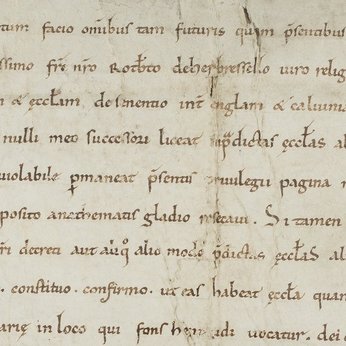 tum facio omībus tam futuris quam p̄sentibus
issimo fr̄e nr̄o Rothb̄to de herpressello uiro relig
& ęccłam. de smentio int̄ englam & caluuma
nulli meo successori liceat p̄dictas ęccłas al
uiolabile ꝑmaneat p̄sentis priuilegii pagina
posito anathematis gladio resecaui. Si tamen
ri decreti aut aliq̄o alio modo p̄dictas ęccłas al
constituo. confirmo. ut eas habeat ęccła quam
arię in loco qui fons huualdi uocatur. dei